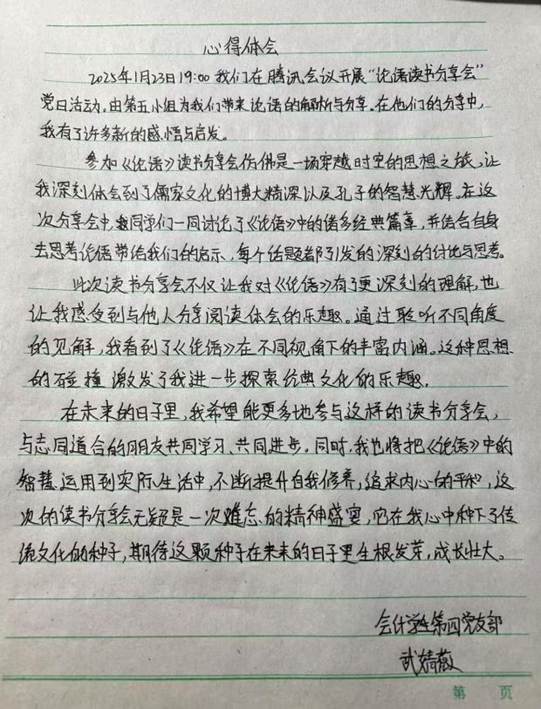 心得体会
2025年1月23日19:00我们在腾讯会议开展“论语读书分享会”
党日活动,由第五小组为我们带来论语的解析与分享。在他们的分享中,
我有了许多新的感悟与启发。
参加《论语》读书分享会仿佛是一场穿越时空的思想之旅,让
我深刻体会到了儒家文化的博大精深以及孔子的智慧光辉。在这
次分享会中,我同学们一同讨论了《论语》中的诸多经典篇章,并结合自身
去思考论语带给我们的启示,每个话题都引发的深刻的讨论与思考。
此次读书分享会不仅让我对《论语》有了更深刻的理解,也
让我感受到与他人分享阅读体会的乐趣。通过聆听不同角度
的见解,我看到了《论语》在不同视角下的丰富内涵。这种思想
的碰撞激发了我进一步探索经典文化的乐趣.
在未来的日子里,我希望能更多地参与这样的读书分享会,
与志同道合的朋友共同学习、共同进步。同时,我也将把《论语》中的
智慧运用到实际生活中,不断提升自我修养,追求内心的平和,这
次的读书分享会无疑是一次难忘的精神盛宴,它在我心中种下了传
统文化的种子,期待这颗种子在未来的日子里生根发芽,成长壮大。
会计学生第四党支部
武婧薇
第 页